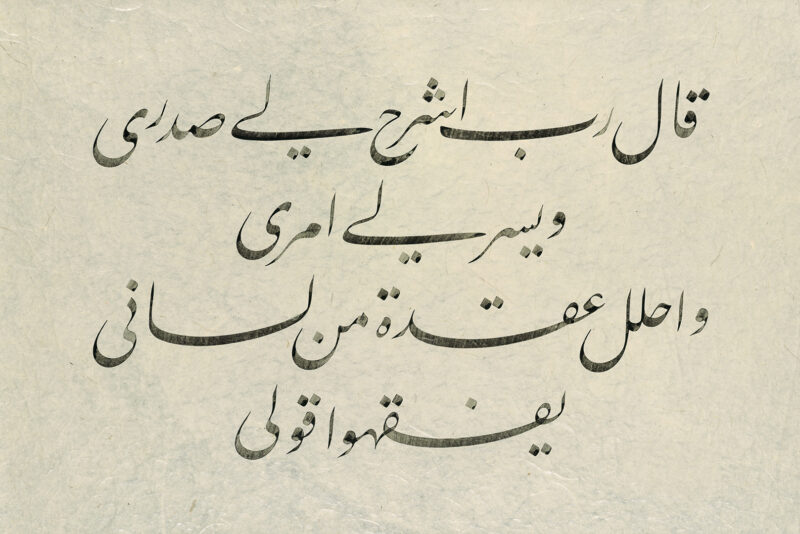 قال رب اشرح لي صدری
ویسر لي امری
واحلل عقدة من لسانی
یفقهوا قولی